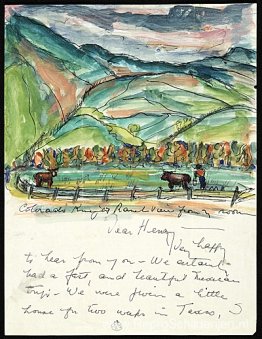 Colorado King's Ranch View from my room
Dear Henry —
Very happy
to hear from you — We certainly
had a fast, and beautiful Mexican
trip — We were given a little
house for two weeks in Taxco,